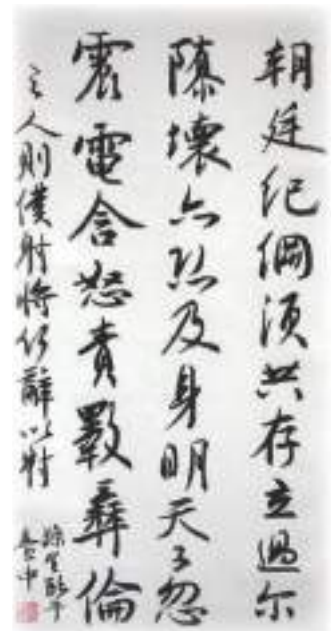 朝廷纪綱須共存立過尔
隳壞亦恐及身明天子忽
震電含怒責斁彞倫
之人則僕射將何辭以對